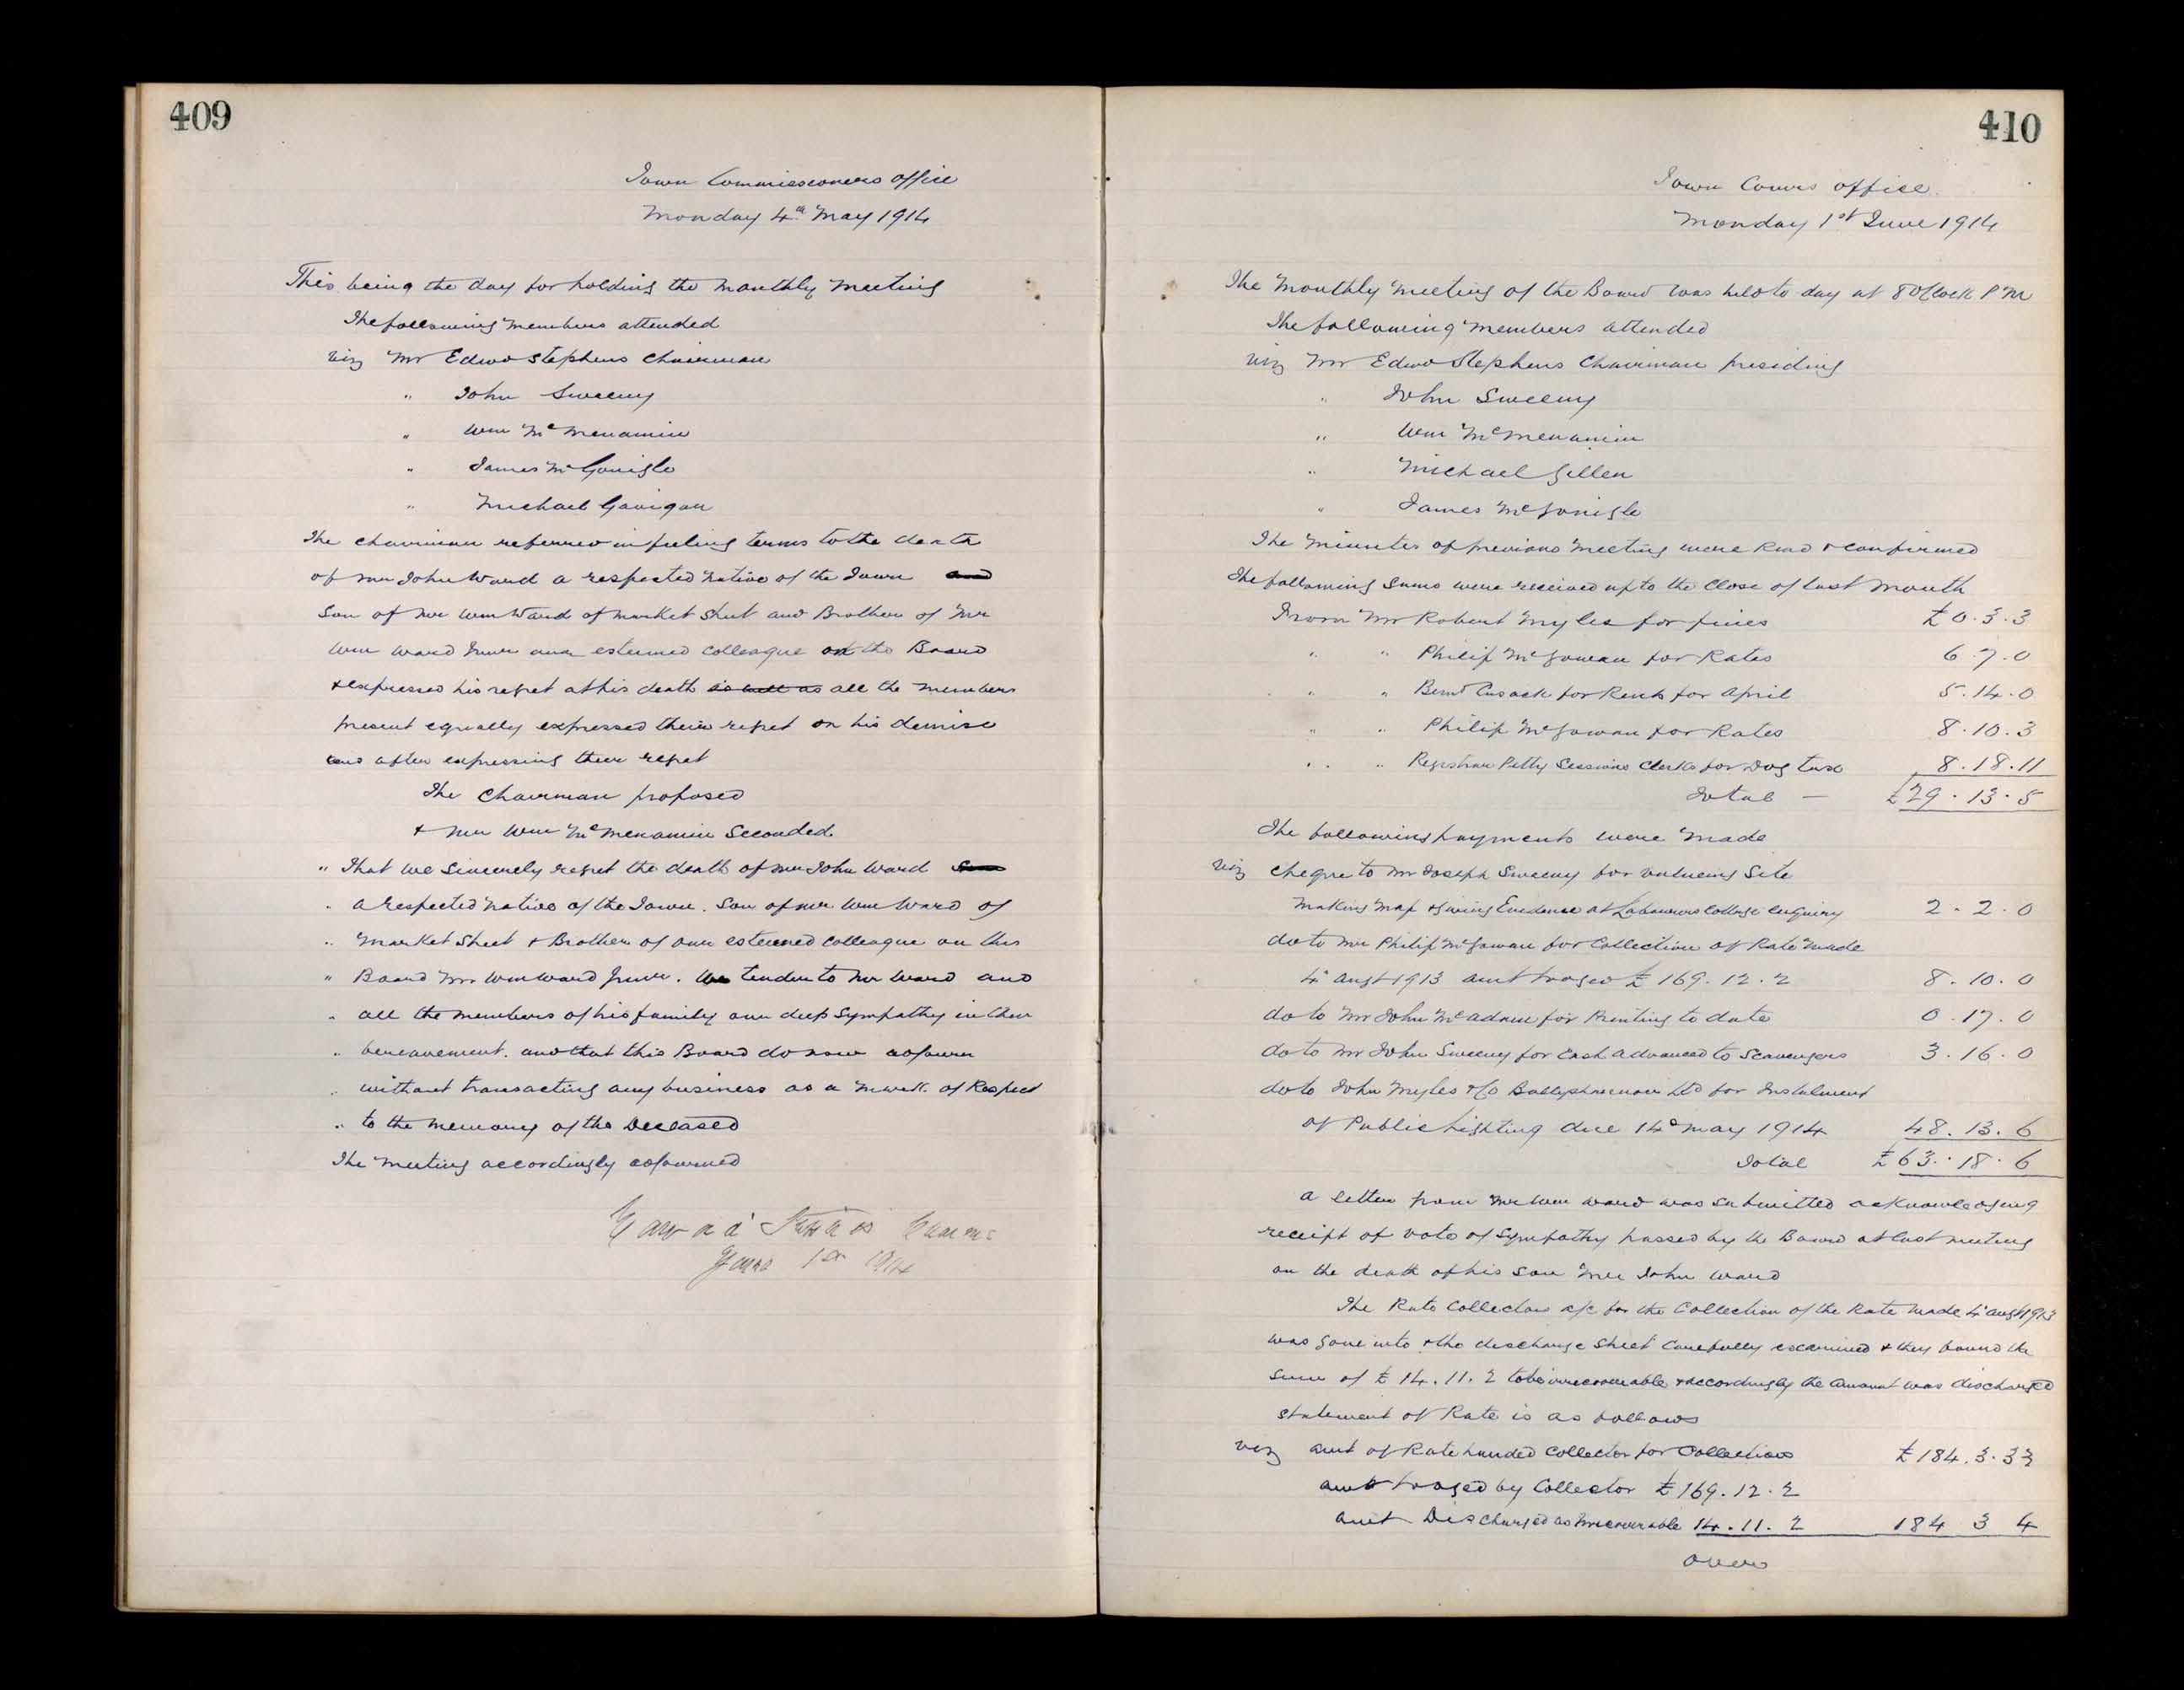 409
Town Commissioners office
Monday 4th May 1914
This being the day for holding the Monthly Meeting
The following Members attended
viz Mr Edwd Stephens Chairman
" John Sweeny
" Wm McMenamin
" James McGonigle
" Michael Gavigan
The Chairman referred in feeling terms to the death
of Mr John Ward a respected native of the Town and
Son of Mr Wm Ward of Market Street and Brother of Mr
Wm Ward Junr our esteemed Colleague on the Board
& expressed his regret at his death as well as all the Members
present equally expressed their regret on his demise
and after expressing their regret
The Chairman proposed
& Mr Wm McMenamin Seconded
" That we Sincerely regret the death of Mr John Ward Son
" a respected native of the Town. Son of Mr Wm Ward of
" Market Street & Brother of our esteemed Colleague on this
" Board Mr Wm Ward Junr. We tender to Mr Ward and
" all the Members of his family our deep Sympathy in their
" bereavement. and that this Board do now adjourn
" without transacting any business as a mark of Respect
" to the Memory of the Deceased
The Meeting accordingly adjourned
Edward Stephens
June 1st 1914
410
Town Comrs office
Monday 1st June 1914
The Monthly Meeting of the Board was held to day at 8 OClock P M
The following Members attended
viz Mr Edwd Stephens Chairman presiding
" John Sweeny
" Wm McMenamin
" Michael Gillen
" James McGonigle
The Minutes of previous Meeting were read & confirmed
The following Sums were received up to the Close of last Month
From Mr Robert Myles for fines £0.3.3
" " Philip McGowan for Rates 6.7.0
" " Bernd Cusack for Rents for April 5.14.0
" " Philip McGowan for Rates 8.10.3
" " Registrar Petty Sessions Clerks for Dog tax 8.18.11
Total — £29.13.5
The following payments were Made
viz Cheque to Mr Joseph Sweeny for valueing Site
Making Map & giving Evidence at Labourers Cottage enquiry 2.2.0
do to Mr Philip McGowan for Collection of Rate Made
4th augt 1913 amt lodged £169.12.2 8.10.0
do to Mr John McAdam for Printing to date 0.17.0
do to Mr John Sweeny for Cash advanced to Scavengers 3.16.0
do to John Myles & Co Ballyshannon Ltd for Instalment
of Public Lighting due 14th May 1914 48.13.6
Total £63.18.6
a letter from Mr Wm Ward was submitted acknowledging
receipt of vote of Sympathy passed by the Board at last meeting
on the death of his Son Mr John Ward
The Rate Collectors a/c for the Collection of the Rate Made 4th augt 1913
was gone into & the discharge Sheet Carefully examined & they found the
Sum of £14.11.2 to be irrecoverable & accordingly the amount was discharged
Statement of Rate is as follows
viz amt of Rate handed Collector for Collection £184.3.3
amt lodged by Collector £169.12.2
amt Discharged as Irrecoverable 14.11.2 184 3 4
over